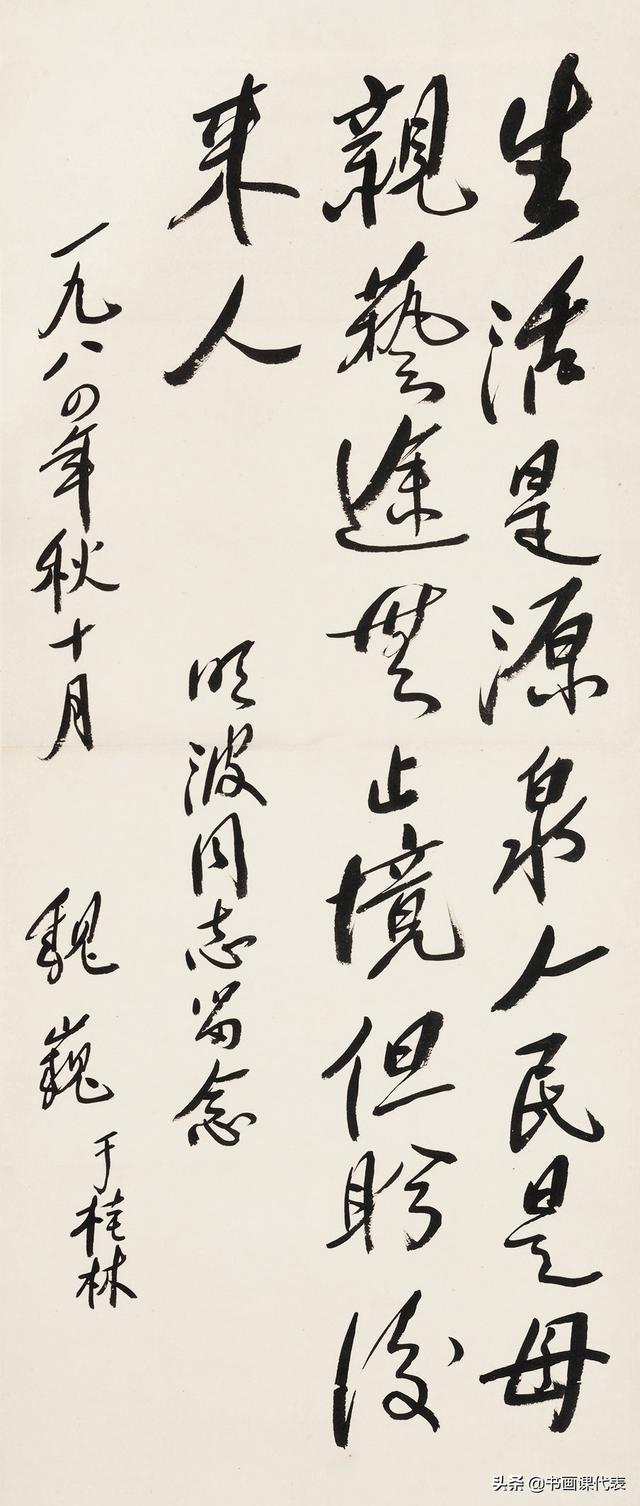 生活是源泉人民是母
親藝途無止境但盼後
来人
明波同志留念
一九八四年秋十月
魏巍
于桂林
头条 @书画课代表